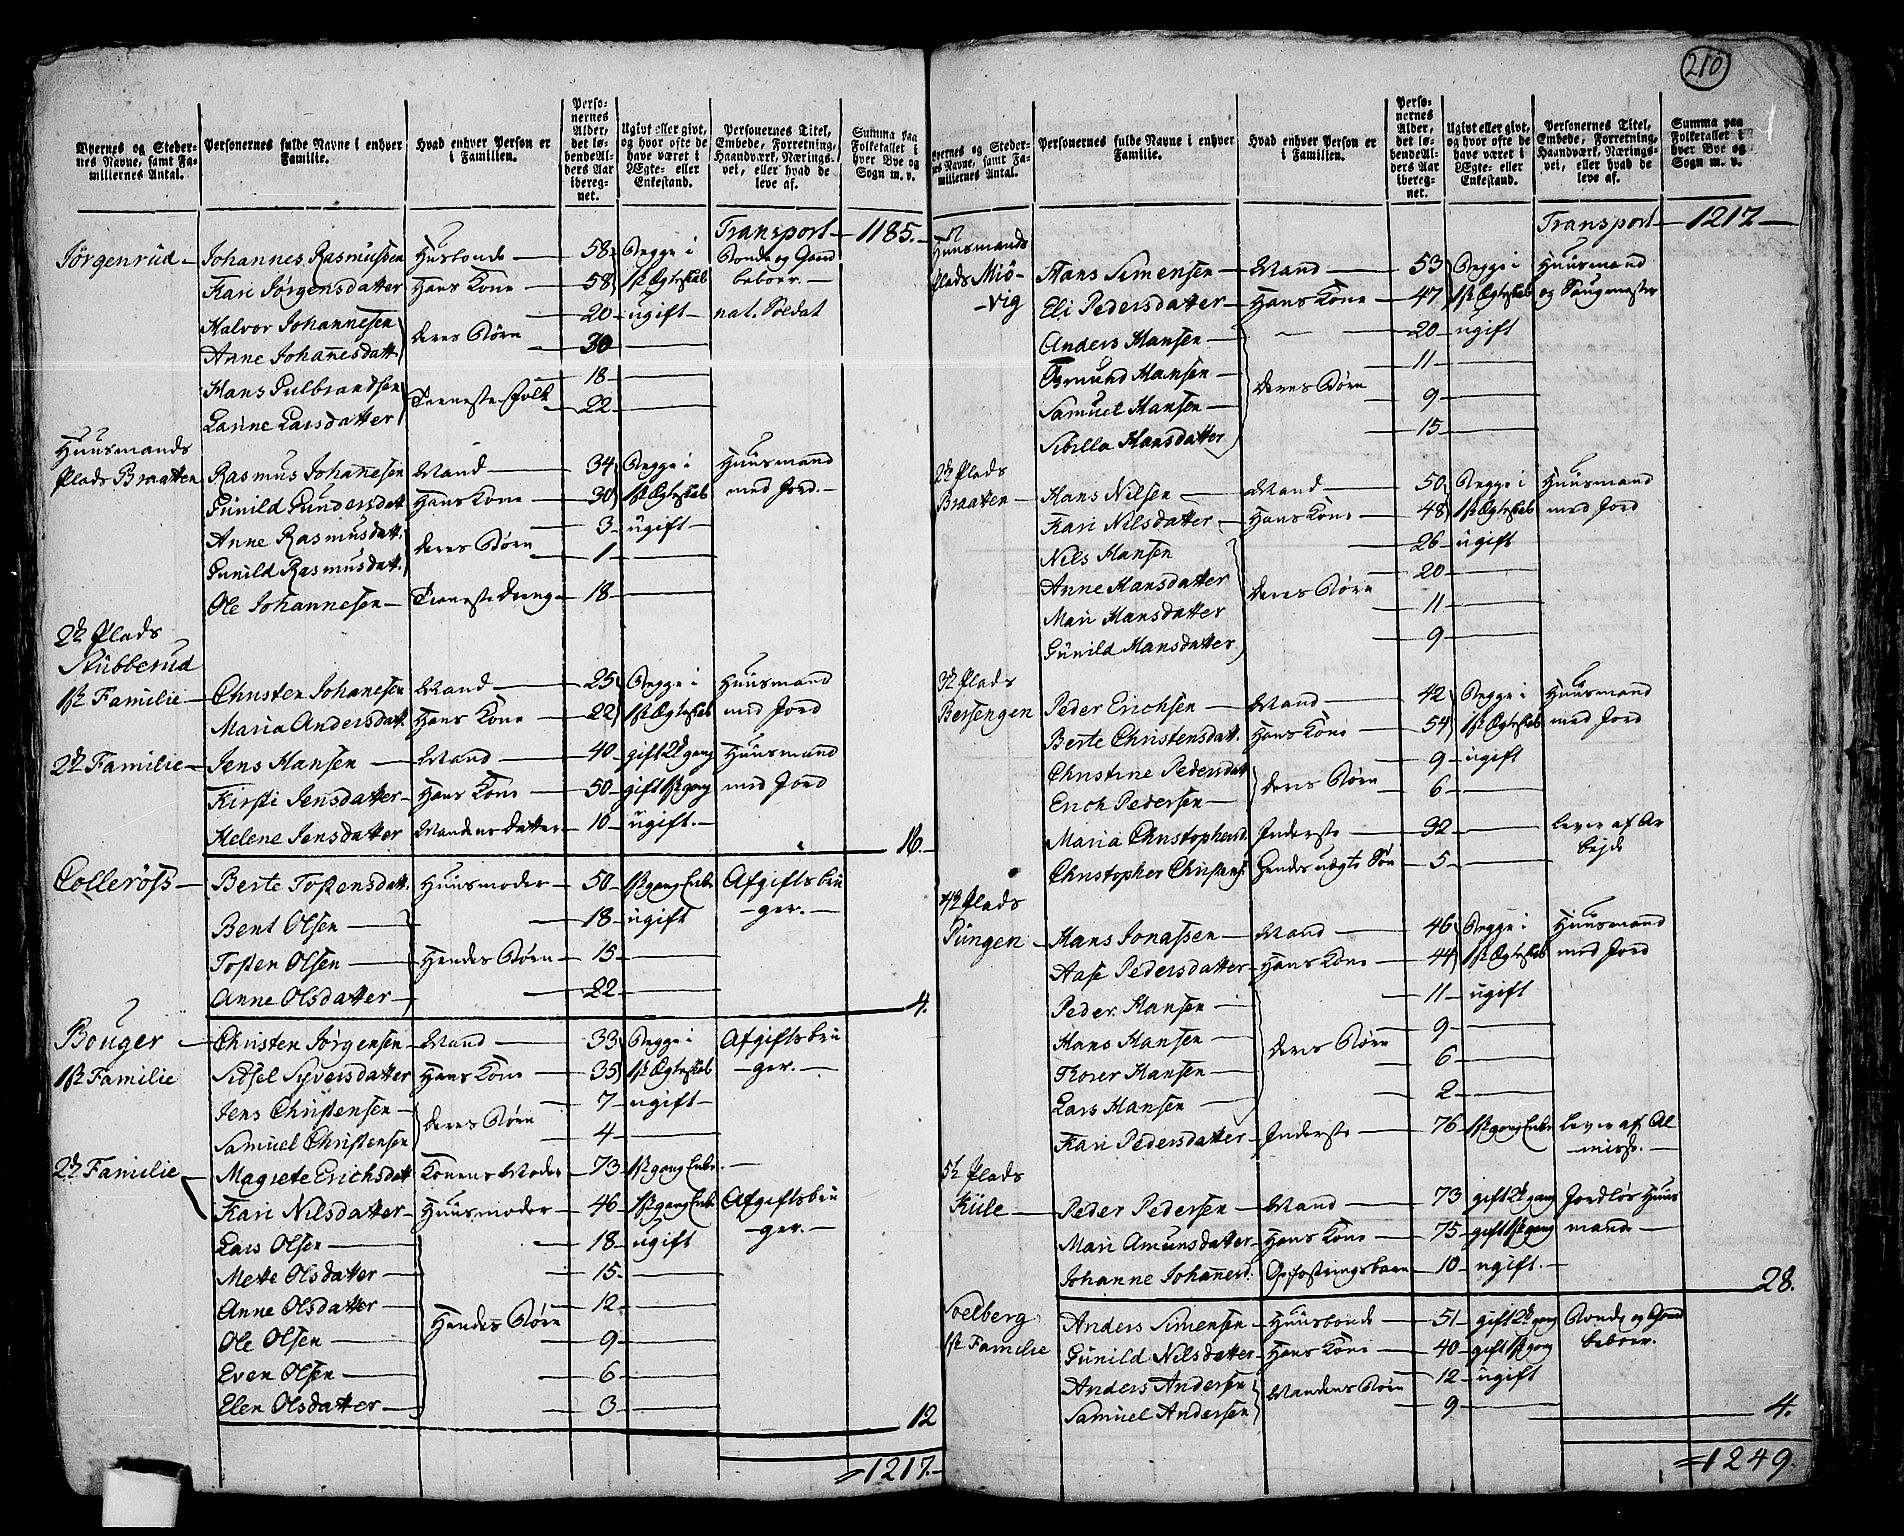 210
Byernes og Steder-
nes Navne, samt Fa-
miliernes Antal.
Personernes fulde Navne i enhver
Familie.
Hvad enhver Person er
i Familien.
Perso-
nernes
Alder,
det lø-
bende Al-
ders Aar
ibereg-
net.
Ugivt eller givt,
og hvor ofte de
have været i
Ægte- eller
Enkestand.
Personernes Titel,
Embede, Forretning,
Haandværk, Nærings-
vei, eller hvad de
leve af.
Summa paa
Folketallet i
hver Bye og
Sogn m. v.
Transport — 1185.
Jörgenrud — Johannes Rasmussen Husbonde — 58 Begge i Bonde og Gaard
Kari Jørgensdatter Hans Kone — 58 1st Ægteskab beboer. —
Halvor Johannesen deres Børn 20 ugift — nat. Soldat
Anne Johannesdatt. — 30 —
Hans Gulbrandsen Tieneste-folk 18 —
Larine Larsdatter 22 —
Huusmands
Plads Braatten Rasmus Johannesen Mand — 34 Begge i Huusmand
Gunild Gundersdatt Hans Kone 30 1st Ægteskab med Jord. —
Anne Rasmusdatt. deres Børn 3 ugift —
Gunild Rasmusdatt. 1 —
Ole Johannesen — Tieneste Dreng — 18 —
2de Plads
Stubberud
1ste Familie — Christen Johanesen Mand — 25 Begge i Huusmand
Maria Andersdatt. Hans Kone — 22 1st Ægteskab med Jord
2de Familie — Jens Hansen — Mand — 40 gift 2d gang Huusmand
Kirsti Jensdatter — Hans Kone — 50 gift 1st gang med Jord
Helene Jensdatter Mandens datter — 10 ugift. — 16.
Collerøss — Berte Tostensdatt. Huusmoder — 50 1st gang Enke Afgiftsbru
Bent Olsen — 18 ugift — ger. —
Tosten Olsen — Hendes Børn — 15 —
Anne Olsdatter — 22 — 4.
Bouger — Christen Jørgensen Mand — 33 Begge i Afgiftsbru
1ste Familie Sidsel Syversdatter Hans Kone — 35 1st Ægteskab — ger. —
Jens Christensen — deres Børn 7 ugift —
Samuel Christensen 4 —
2de Familie — Magrete Erichsdatt Konens Moder — 73 1st gang Enke —
Kari Nilsdatter — Huusmoder — 46 1st gang Enke Afgiftsbru
Lars Olsen — 18 ugift — ger. —
Mette Olsdatter — 15 —
Anne Olsdatter — Hendes Børn 12 —
Ole Olsen — 9 —
Even Olsen — 6 —
Elen Olsdatter — 3 — 12
1217. —
Byernes og Steder-
nes Navne, samt Fa-
miliernes Antal.
Personernes fulde Navne i enhver
Familie.
Hvad enhver Person er
i Familien.
Perso-
nernes
Alder,
det lø-
bende Al-
ders Aar
ibereg-
net.
Ugivt eller givt,
og hvor ofte de
have været i
Ægte- eller
Enkestand.
Personernes Titel,
Embede, Forretning,
Haandværk, Nærings-
vei, eller hvad de
leve af.
Summa paa
Folketallet i
hver Bye og
Sogn m. v.
Transport — 1217 —
Huusmands
Plads Miö- Hans Simensen — Mand — 53 Begge i Huusmand
-vig Eli Pedersdatter — Hans Kone — 47 1st Ægteskab og Saugmester
Anders Hansen — 20 ugift
Hansen — 11 —
Samuel Hansen — deres Børn 9 —
Sibilla Hansdatter 15 —
2de Plads
Braaten — Hans Nilsen — Mand — 50 Begge i Huusmand
Kari Nilsdatter — Hans Kone — 48 1st Ægteskab med Jord
Nils Hansen 26 ugift
Anne Hansdatter deres Børn 20 —
Mari Hansdatter 11 —
Gunild Hansdatter 9 —
3die Plads
Bersengen Peder Erichsen — Mand — 42 Begge i Huusmand
Berte Christensdatt. Hans Kone — 54 1st Ægteskab med Jord
Christine Pedersdatt deres Børn 9 ugift
Erich Pedersen — 6 —
Maria Christophersd. Inderste — 32 — lever af Ar
Christopher Christens. Hendes uægte Søn 5 — bejde
4de Plads
Püngen — Hans Jonassen — Mand — 46 Begge i Huusmand
Aase Pedersdatter — Hans Kone — 44 1st Ægteskab med Jord
Peder Hansen — 11 ugift
Hans Hansen — deres Børn 9 —
Thorer Hansen — 6 —
Lars Hansen — 2 —
Kari Pedersdatter — Inderste — 76 1st gang Enke Lever af Al
misse. —
5te Plads
Küle — Peder Pedersen — Mand — 73 gift 2d gang Jordløs Huus
Mari Amunsdatter — Hans Kone — 75 gift 1st gang mand —
Johanne Johannesd. Opfostringsbarn — 10 ugift. — 28.
Soelberg Anders Simensen — Huusbonde — 51 gift 2d gang Bonde og Gaard
1ste Familie Gunild Nilsdatter — Hans Kone — 40 gift 1st gang beboer.
Anders Andersen Mandens Børn 12 ugift
Samuel Andersen 9 — 4.
1249.